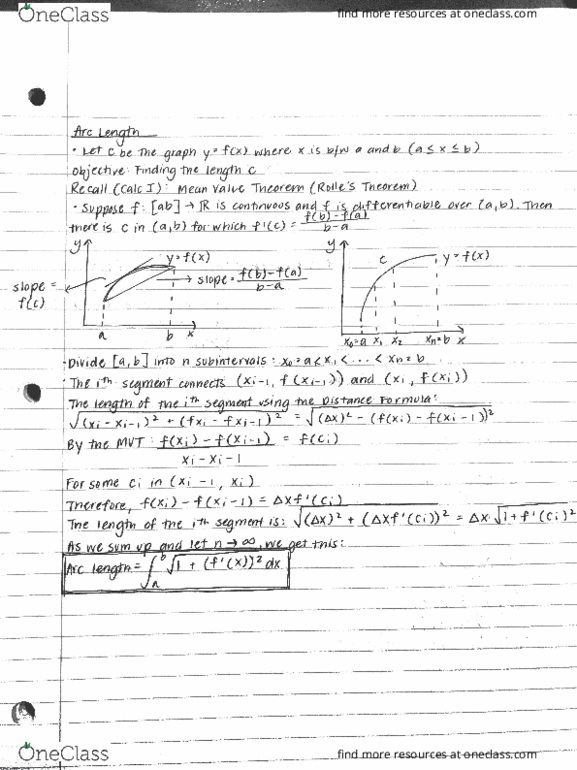 OneClass
find more resources at oneclass.com
Arc Length
• Let C be the graph y = f(x) where x is b/w a and b (a ≤ x ≤ b)
Objective: Finding the length C
Recall (Calc I): Mean Value Theorem (Rolle's Theorem)
• Suppose f: [ab] → ℝ is continuous and f is differentiable over (a,b). Then
there is c in (a,b) for which f'(c) = f(b) - f(a) / b - a
y
y = f(x)
slope = f(b) - f(a) / b - a
slope =
f(c)
a b x
y
C
y = f(x)
x₀=a x₁ x₂ xn=b x
• Divide [a,b] into n subintervals: x₀ = a < x₁ < ... < xn = b
• The ith segment connects (xi-1, f(xi-1)) and (xi, f(xi))
The length of the ith segment using the Distance Formula:
√(xi - xi-1)² + (fxi - fxi-1)² = √(Δx)² - (f(xi) - f(xi-1))²
By the MVT: f(xi) - f(xi-1) / xi - xi-1 = f(ci)
For some ci in (xi-1, xi)
Therefore, f(xi) - f(xi-1) = Δxf'(ci)
The length of the ith segment is: √(Δx)² + (Δxf'(ci))² = Δx √1 + f'(ci)²
As we sum up and let n → ∞, we get this:
Arc length = ∫ₐᵇ √1 + (f'(x))² dx
OneClass
find more resources at oneclass.com